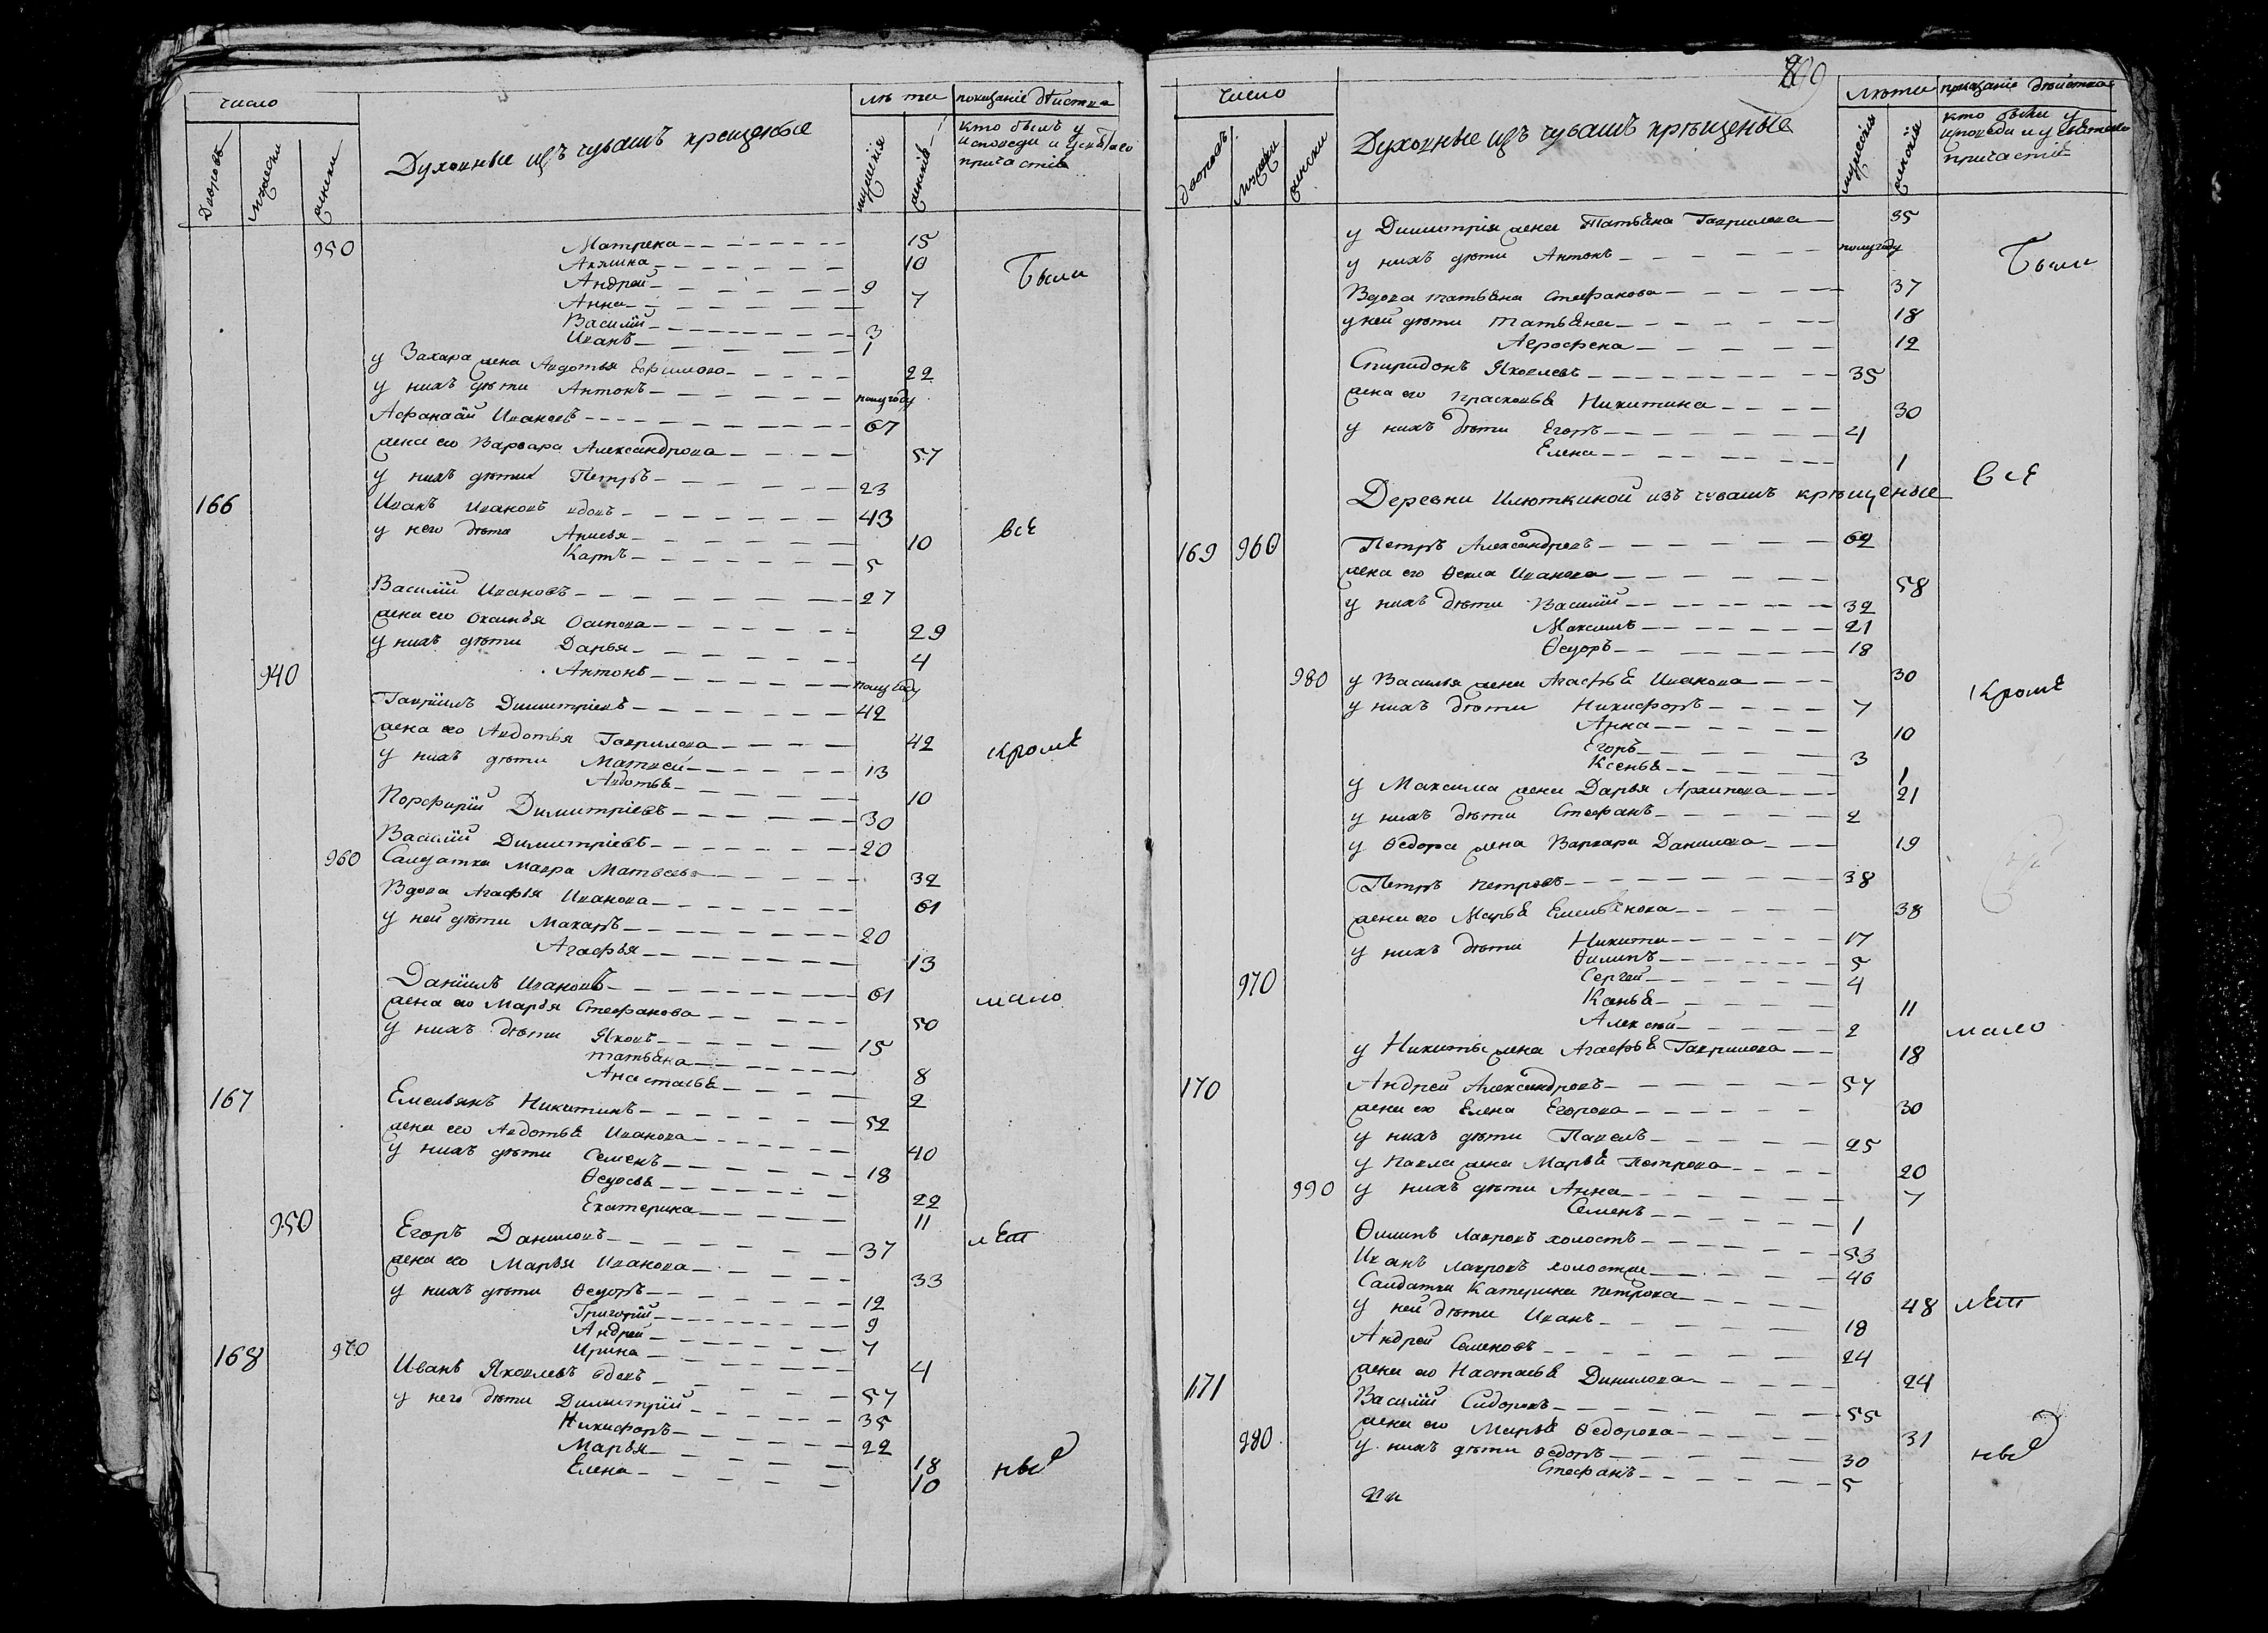 число
лѣта
показаніе действа
Дворовъ
мужеска
женска
Духовные изъ чувашъ крещеные
мужескія
женскія
кто былъ у
исповеди и у святаго
причастія
950 Матрена 15
Акилина 10
Были
Андрей 9
Анна 7
Василій 3
Иванъ 1
у Захара жена Авдотья Ефимова 22
у нихъ дѣти Антонъ полугоду
Афанасій Ивановъ 67
жена его Варвара Александрова 57
у нихъ дѣти Петръ 23
166 Иванъ Ивановъ вдовъ 43
у него дѣти Анисья 10
всѣ
Карпъ 5
Василій Ивановъ 27
жена его Оксинья Осипова 29
у нихъ дѣти Дарья 4
940 Антонъ полугоду
Гаврилъ Димитріевъ 42
жена его Авдотья Гаврилова 42
кромѣ
у нихъ дѣти Матвей 13
Авдотья 10
Порфирій Димитріевъ 30
Василій Димитріевъ 20
960 Салдатка Мавра Матвеева 32
Вдова Агафья Иванова 61
у ней дѣти Макаръ 20
Агафья 13
Данилъ Ивановъ 61
мало
жена его Марья Стефанова 50
у нихъ дѣти Яковъ 15
Татьяна 8
Анастасья 2
167 Емельянъ Никитинъ 52
жена его Авдотья Иванова 40
у нихъ дѣти Семенъ 18
Ѳедосья 22
Екатерина 11
950 Егоръ Даниловъ 37
лѣт
жена его Марья Иванова 33
у нихъ дѣти Ѳедоръ 12
Григорій 9
Андрей 7
970 Ирина 4
168 Иванъ Яковлевъ вдовъ 57
у него дѣти Димитрій 35
Никифоръ 22
Марья 18
Елена 10
ные
число
лѣта
показаніе действа
дворовъ
мужски
женски
Духовные изъ чувашъ крѣщеные
мужескія
женскія
кто были у
исповеди и у святаго
причастія
у Димитрія жена Татьяна Гаврилова 35
у нихъ дѣти Антонъ полугоду
Были
Вдова татьяна Стефанова 37
у ней дѣти татьяна 18
Агрофена 12
Спиридонъ Яковлевъ 35
жена его Прасковья Никитина 30
у нихъ дѣти Егоръ 4
Елена 1
всѣ
Деревни Илюткиной изъ чувашъ крѣщеные
169 960 Петръ Александровъ 62
жена его Ѳекла Иванова 58
у нихъ дѣти Василій 32
Максимъ 21
Ѳедоръ 18
980 у Василья жена Агафья Иванова 30
Кромѣ
у нихъ дѣти Никифоръ 7
Анна 10
Егоръ 3
Ксенья 1
у Максима жена Дарья Архипова 21
у нихъ дѣти Стефанъ 2
у Ѳедора жена Варвара Данилова 19
Петръ Петровъ 38
жена его Марья Емельянова 38
у нихъ дѣти Никита 17
Ѳилипъ 5
970 Сергей 4
Ксенья 11
Алексѣй 2
мало
у Никиты жена Агафья Гаврилова 18
170 Андрей Александровъ 57
жена его Елена Егорова 30
у нихъ дѣти Павелъ 25
у Павла жена Марья Петрова 20
990 у нихъ дѣти Анна 7
Семенъ 1
Ѳилипъ Лавровъ холостъ 53
Иванъ Лавровъ холостъ 46
Салдатка Катерина Петрова 48
лѣт
у ней дѣти Иванъ 18
Андрей Семеновъ 24
жена его Настасья Данилова 24
171 Василій Сидоровъ 55
жена его Марья Ѳедорова 31
980 у нихъ дѣти Ѳедотъ 30
ные
Стефанъ 5